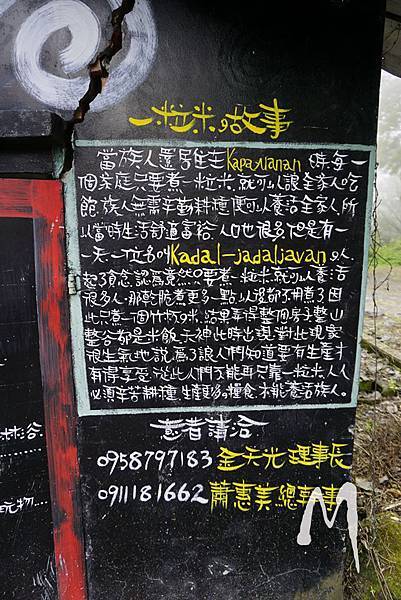 一粒米的故事
當族人還居住在Kapaiwanan時,每一
個家庭只要煮一粒米,就可以讓全家人吃
飽,族人無需辛勤耕種便可以養活全家人,所
以當時生活舒適富裕,人口也很多,但是有一
天,一位名叫Kadal-jadaljavan的人
起了貪念,認為竟然只要煮一粒米就可以養活
很多人,那乾脆煮更多一點以後都不用煮了,因
此只煮一個竹杯的米,結果弄得整個房子、整山
整谷都是米飯,天神此時出現,對此現象
很生氣地說:為了讓人們知道要有生產才
有得享受,從此人們不能再只靠一粒米,人人
必須辛苦耕種,生產更多的糧食,才能養活族人。
意者請洽
0958797183 金天光 理事長
0911181662 蕭惠美 總幹事
M
洽
玩物...